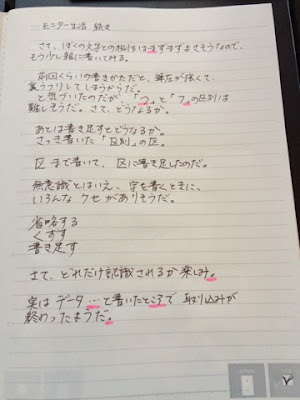 モニター生活 続き
さて、ぼくの文字との相性はますますよさそうなので、
もう少し雑に書いてみる。
前回くらいの書きかただと、筆圧が強くて、
裏うつりしてしまうからだ。
と気づいたのだが…「2」と「フ」の区別は
難しそうだ。さて、どうなるか。
あとは書き足すとどうなるか。
さっき書いた「区別」の区。
区まで書いて、区に書き足したのだ。
無意識とはいえ、字を書くときに、
いろんなクセがありそうだ。
省略する
くずす
書き足す
さて、どれだけ認識されるか楽しみ。
実はデータ…と書いたところで取り込みが
終わったようだ。